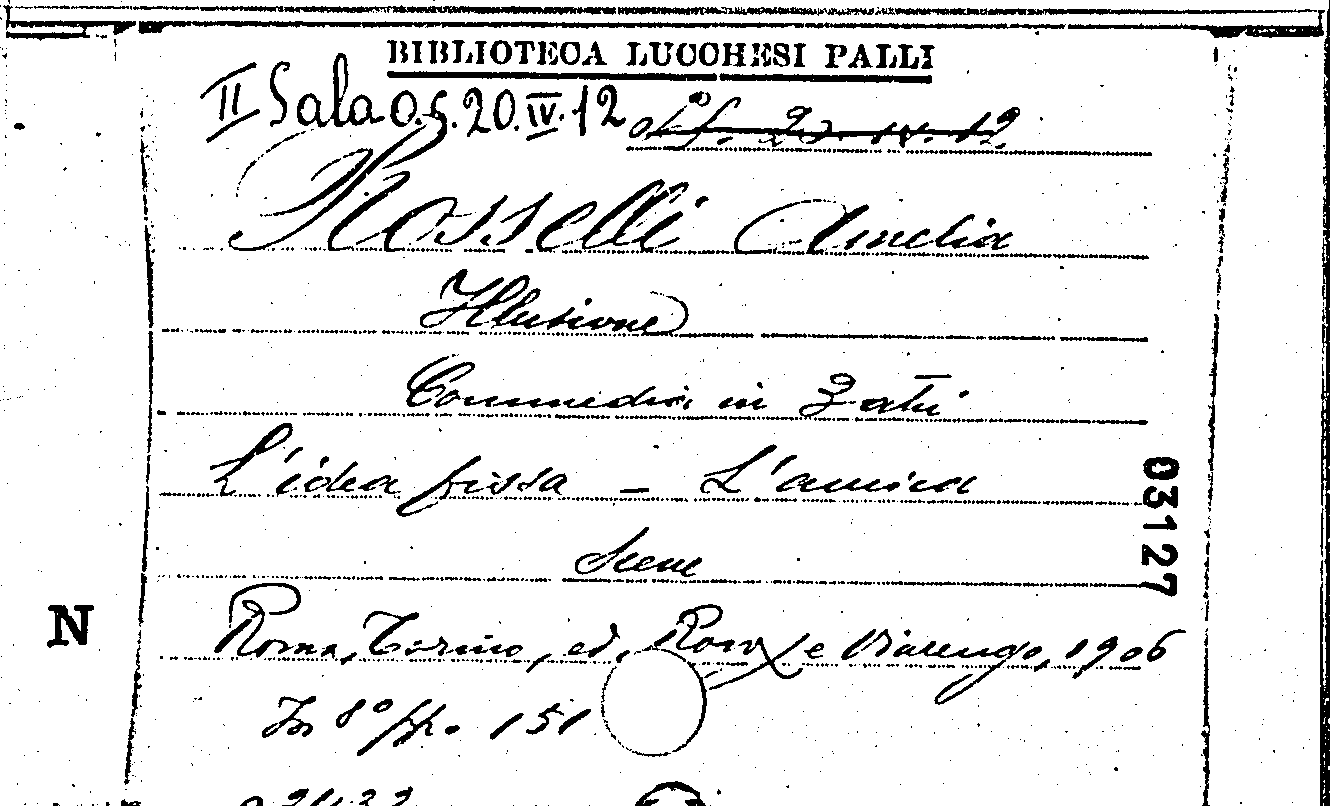 BIBLIOTECA LUCCHESI PALLI
II Sala O.5.20.IV.12
Rosselli Amelia
Illusione
Commedia in 3 atti
L'idea fissa - L'amica
Scene
03127
N
Roma, Torino, ed. Roux e Viarengo, 1906
In 8° pp. 151